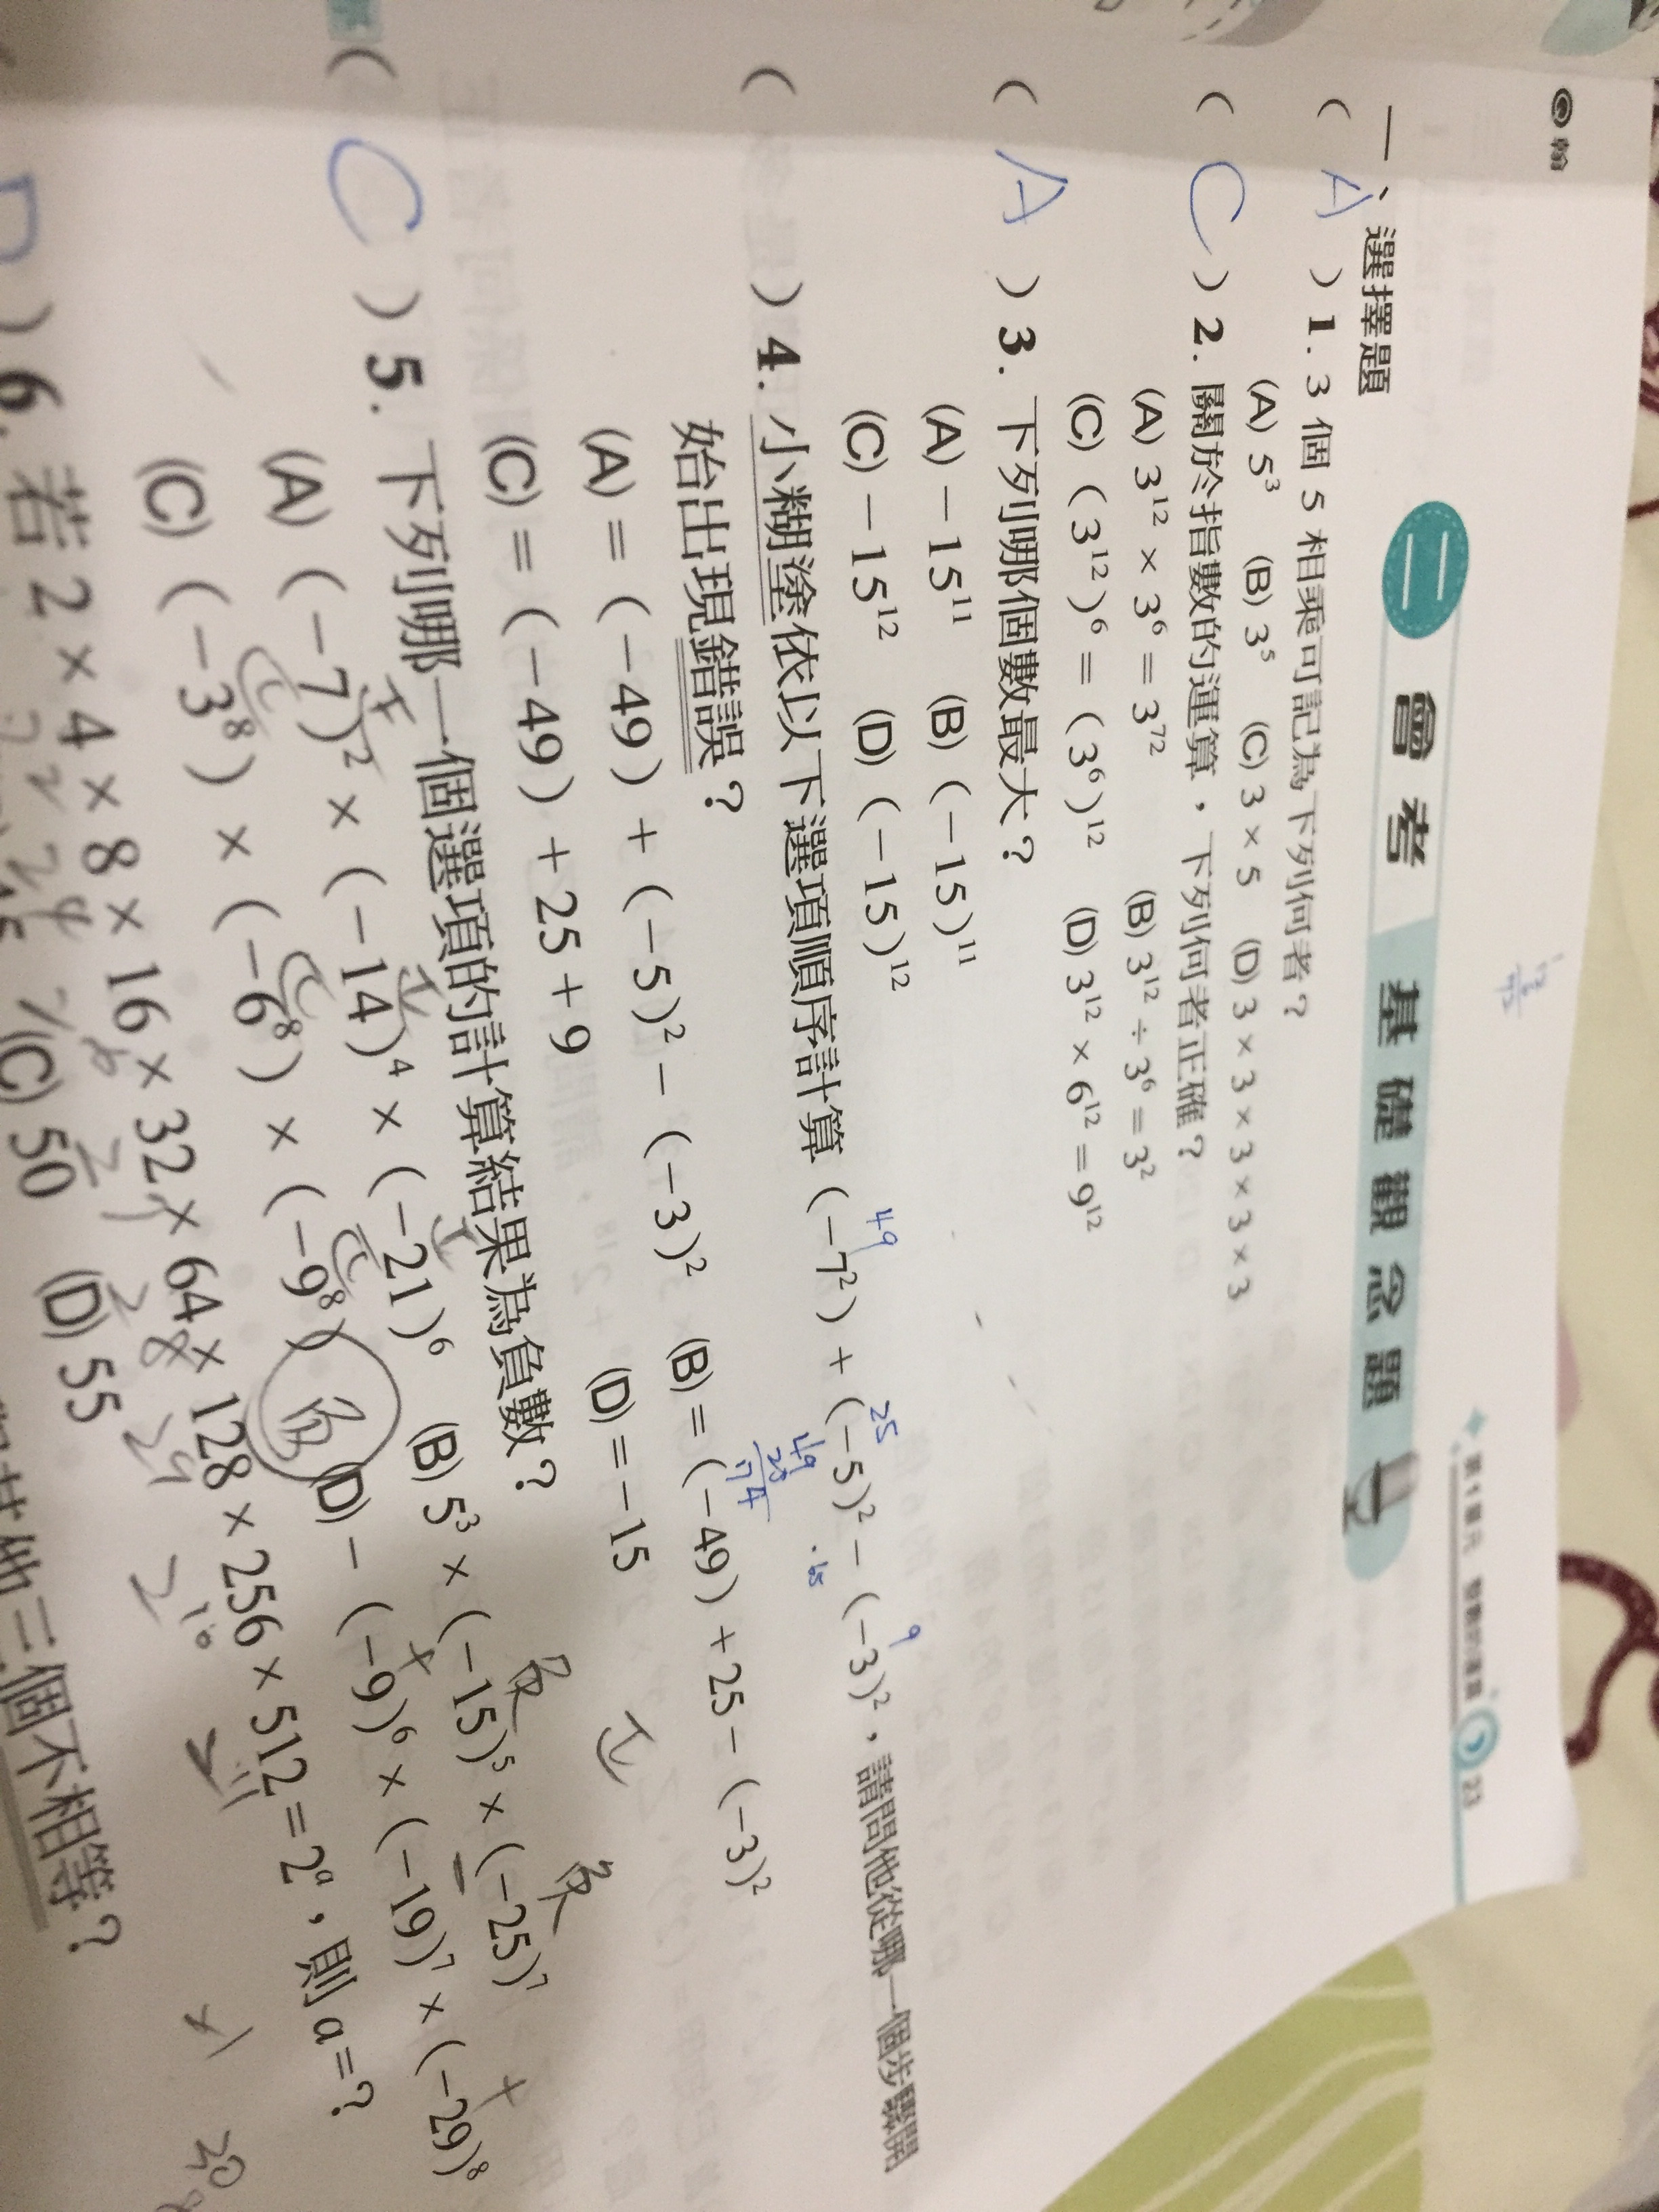 翰
第1單元 23
二 會考 基礎觀念題
一、選擇題
( A ) 1. 3 個 5 相乘可記為下列何者？
(A) 5³ (B) 3⁵ (C) 3 × 5 (D) 3 × 3 × 3 × 3 × 3
( C ) 2. 關於指數的運算，下列何者正確？
(A) 3¹² × 3⁶ = 3⁷² (B) 3¹² ÷ 3⁶ = 3²
(C) ( 3¹² )⁶ = ( 3⁶ )¹² (D) 3¹² × 6¹² = 9¹²
( A ) 3. 下列哪個數最大？
(A) －15¹¹ (B) (－15)¹¹
(C) －15¹² (D) (－15)¹²
49 25 9
( ) 4. 小糊塗依以下選項順序計算 (－7²) + (－5)² － (－3)²，請問他從哪一個步驟開
始出現錯誤？
49
25
74
(A) = (－49) + (－5)² － (－3)² (B) = (－49) + 25 － (－3)²
(C) = (－49) + 25 + 9 (D) = －15
正
( C ) 5. 下列哪一個選項的計算結果為負數？
正 正 正 負 負
(A) (－7)² × (－14)⁴ × (－21)⁶ (B) 5³ × (－15)⁵ × (－25)⁷
負 + － +
(C) (－3⁸) × (－6⁸) × (－9⁸) (D) － (－9)⁶ × (－19)⁷ × (－29)⁸
( D ) 6. 若 2 × 4 × 8 × 16 × 32 × 64 × 128 × 256 × 512 = 2ᵃ，則 a = ?
(C) 50 (D) 55
三個不相等？